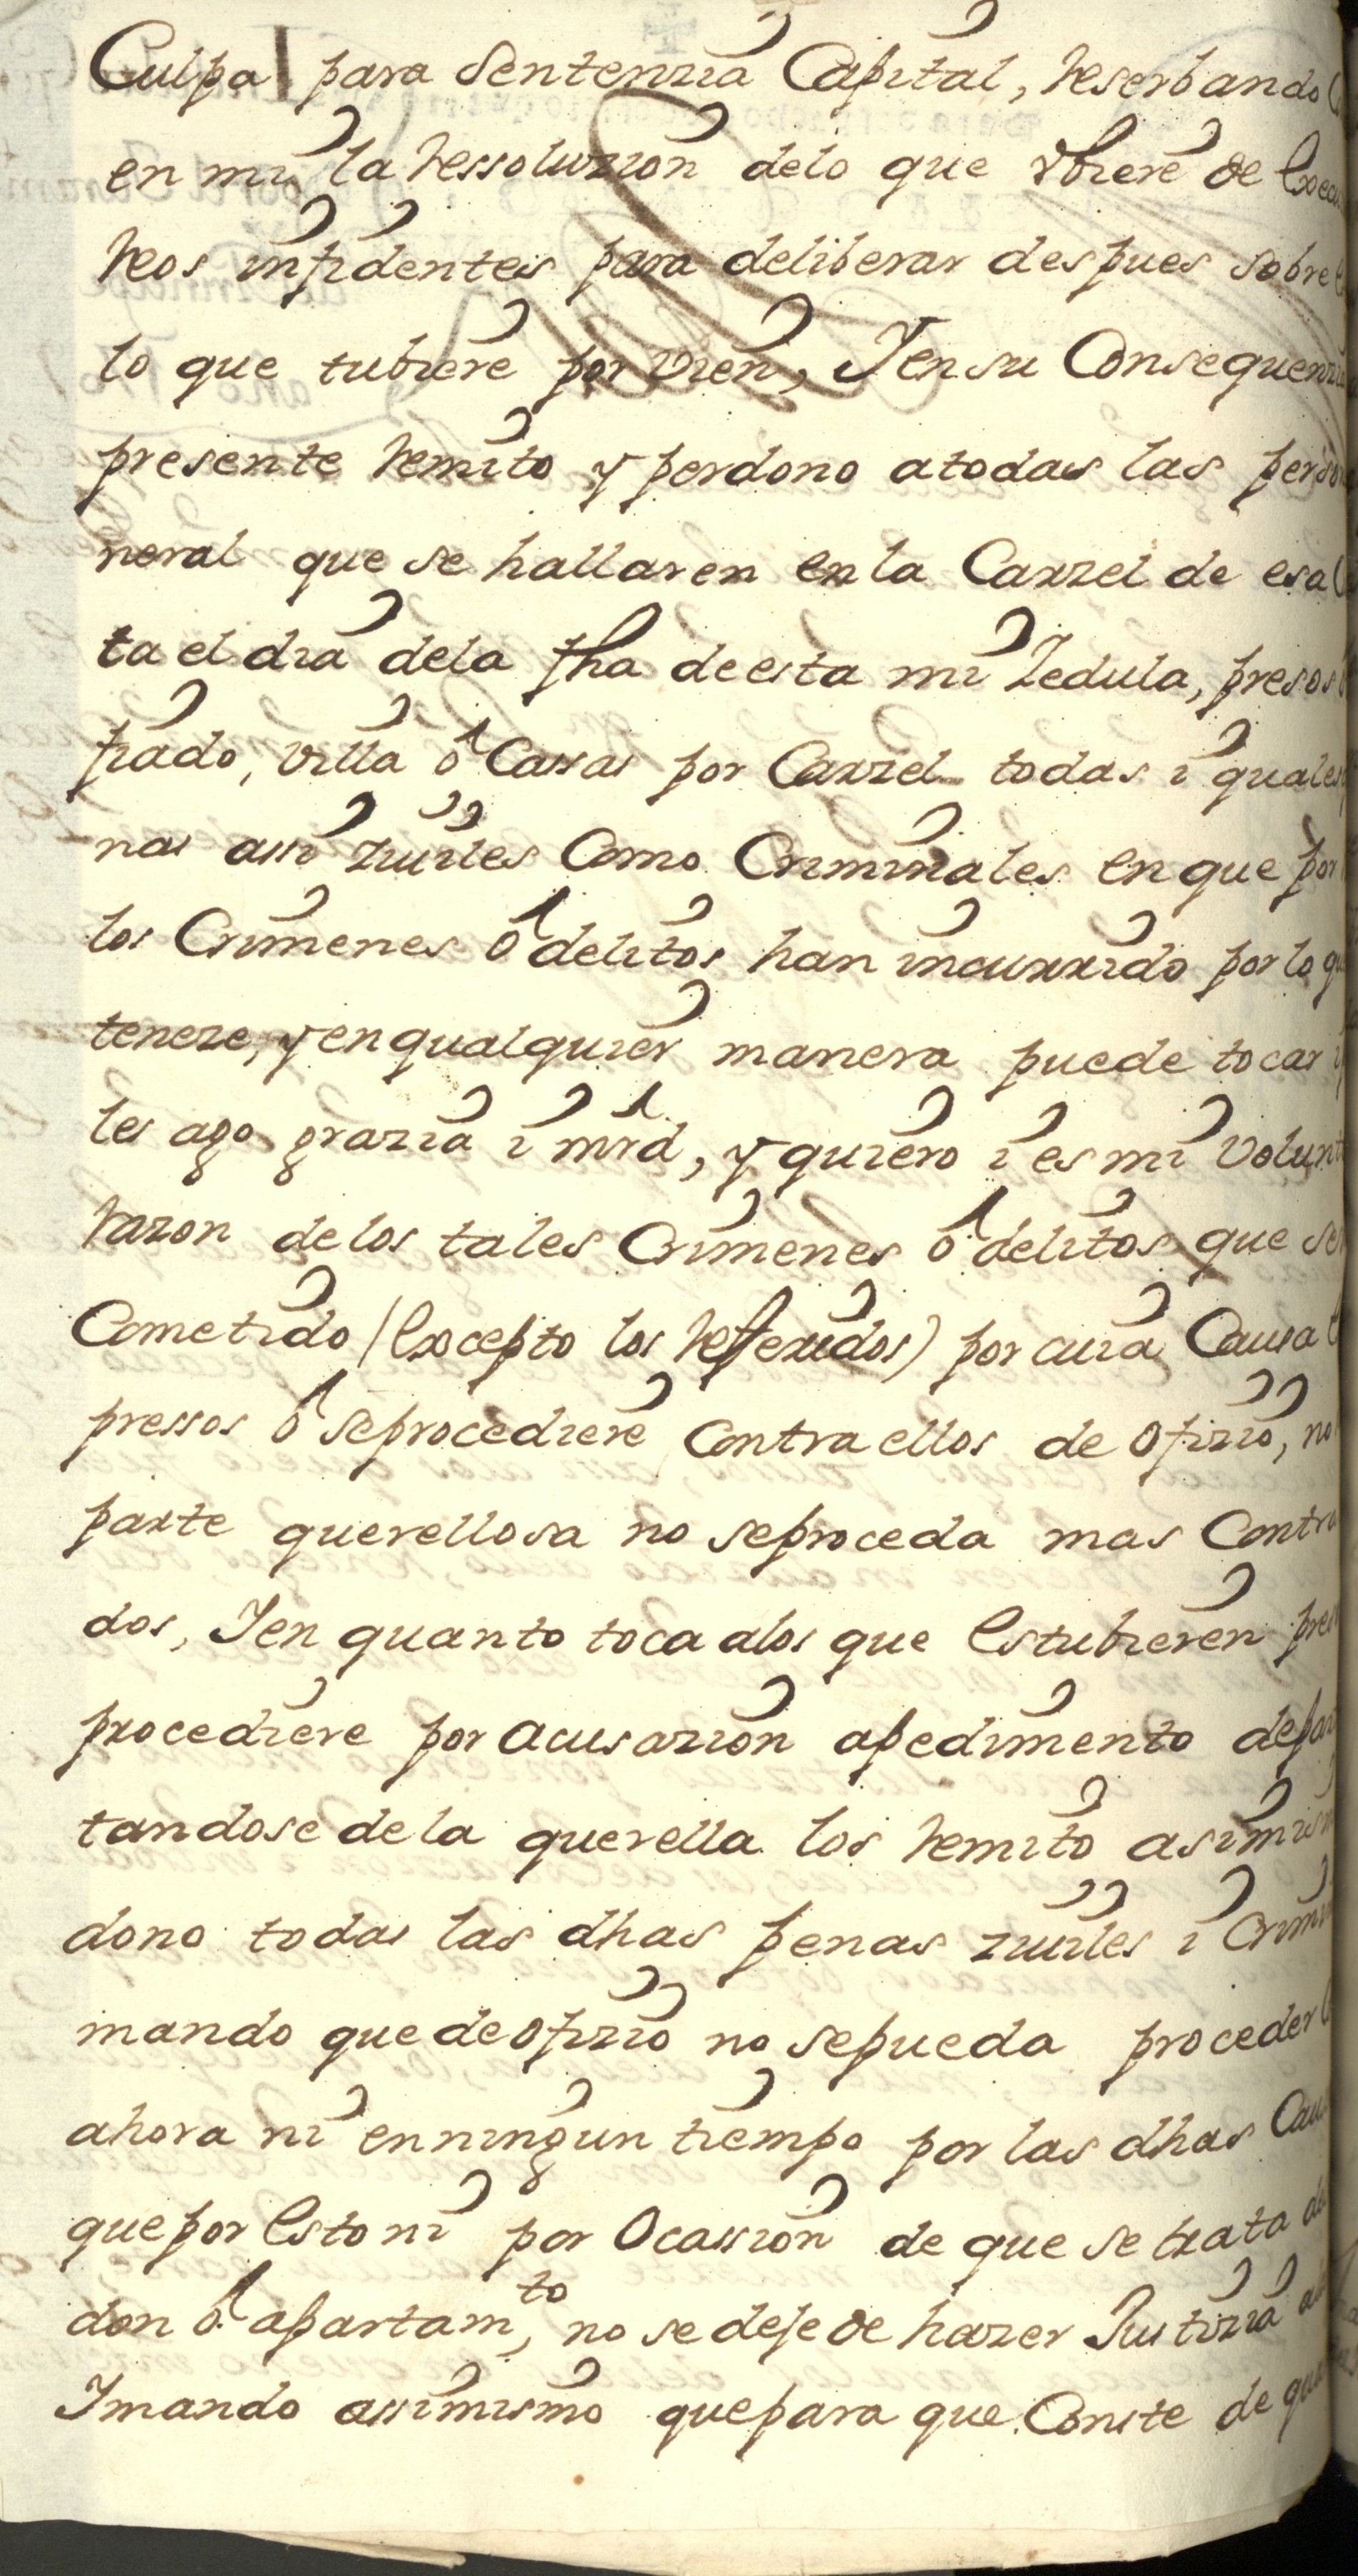 Culpa para Sentenzia Capital, reserbando
en mi la ressoluzion delo que vbiere de
reos infidentes para deliberar despues sobre
lo que tubiere por vien, Y en su Consequenzia
presente remito y perdono atodas las
neral que se hallaren en la Carzel de esa
ta el dia dela fha de esta mi Zedula, presos
fiado, villa ô Cassas por Carzel todas i
nas assi ziuiles Como Criminales en que por
los Crimenes ô delitos han incurrido por lo
teneze, y en qualquier manera puede tocar
les ago grazia i mrd, y quiero i es mi
razon de los tales Crimenes ô delitos que
Cometido (excepto los refferidos) por cuia Causa
pressos ô se procediere contra ellos de ofizio, no
parte querellosa no se proceda mas
dos, Y en quanto toca alos que estubieren
procediere por acusazion apedimento de
tandose de la querella los remito
dono todas las dhas penas ziuiles i
mando que de ofizio no se pueda proceder
ahora ni en ningun tiempo por las dhas
que por esto ni por ocassion de que se trata
don ô apartam^to, no se deje de hazer Justizia
Y mando assimismo que para que Conste de